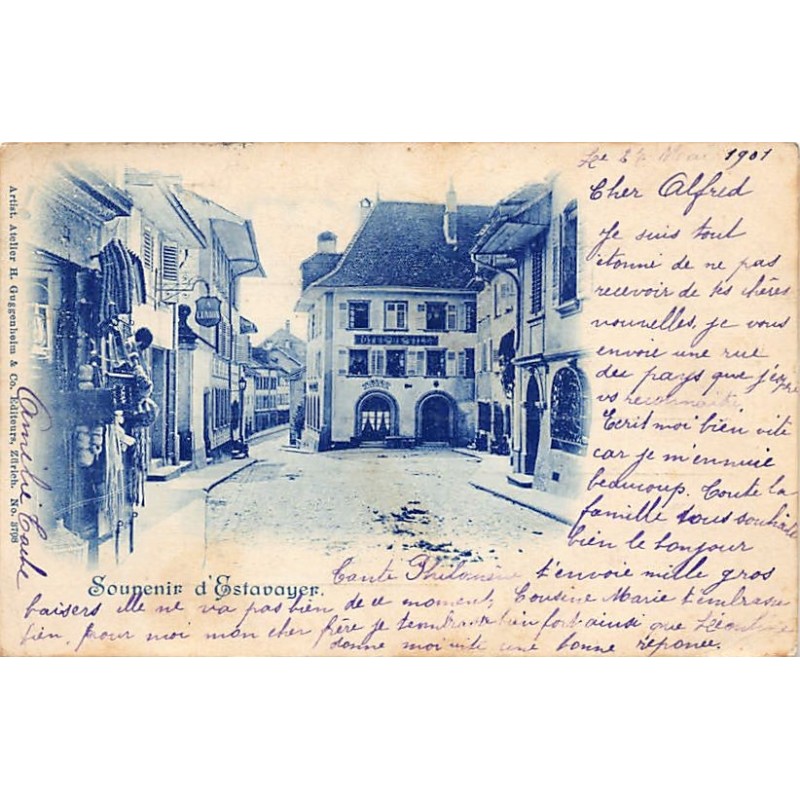 Le 27 Mai 1901
Cher Alfred
Je suis tout
étonné de ne pas
recevoir de tes chères
nouvelles, je vous
envoie une rue
du pays que j'espère
vs reconnaitre
Ecrit moi bien vite
car je m'ennuie
beaucoup. Toute la
famille vous souhaite
bien le bonjour
Tante Philomène t'envoie mille gros
baisers elle ne va pas bien de ce moment, Cousine Marie t'embrasse
bien, pour moi mon cher frère je t'embrasse bien fort ainsi que
donne moi vite une bonne réponse.
Souvenir d'Estavayer.
Artist. Atelier H. Guggenheim & Co., Editeurs, Zürich. No. 3798